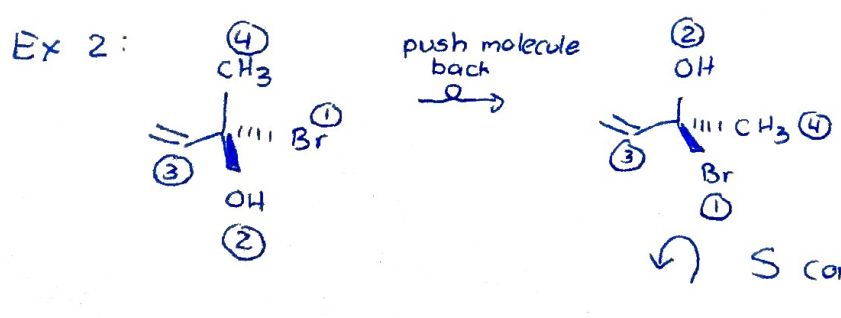 Ex 2:
④
CH3
①
Br
③
OH
②
push molecule
back
②
OH
CH3 ④
③
Br
①
S con